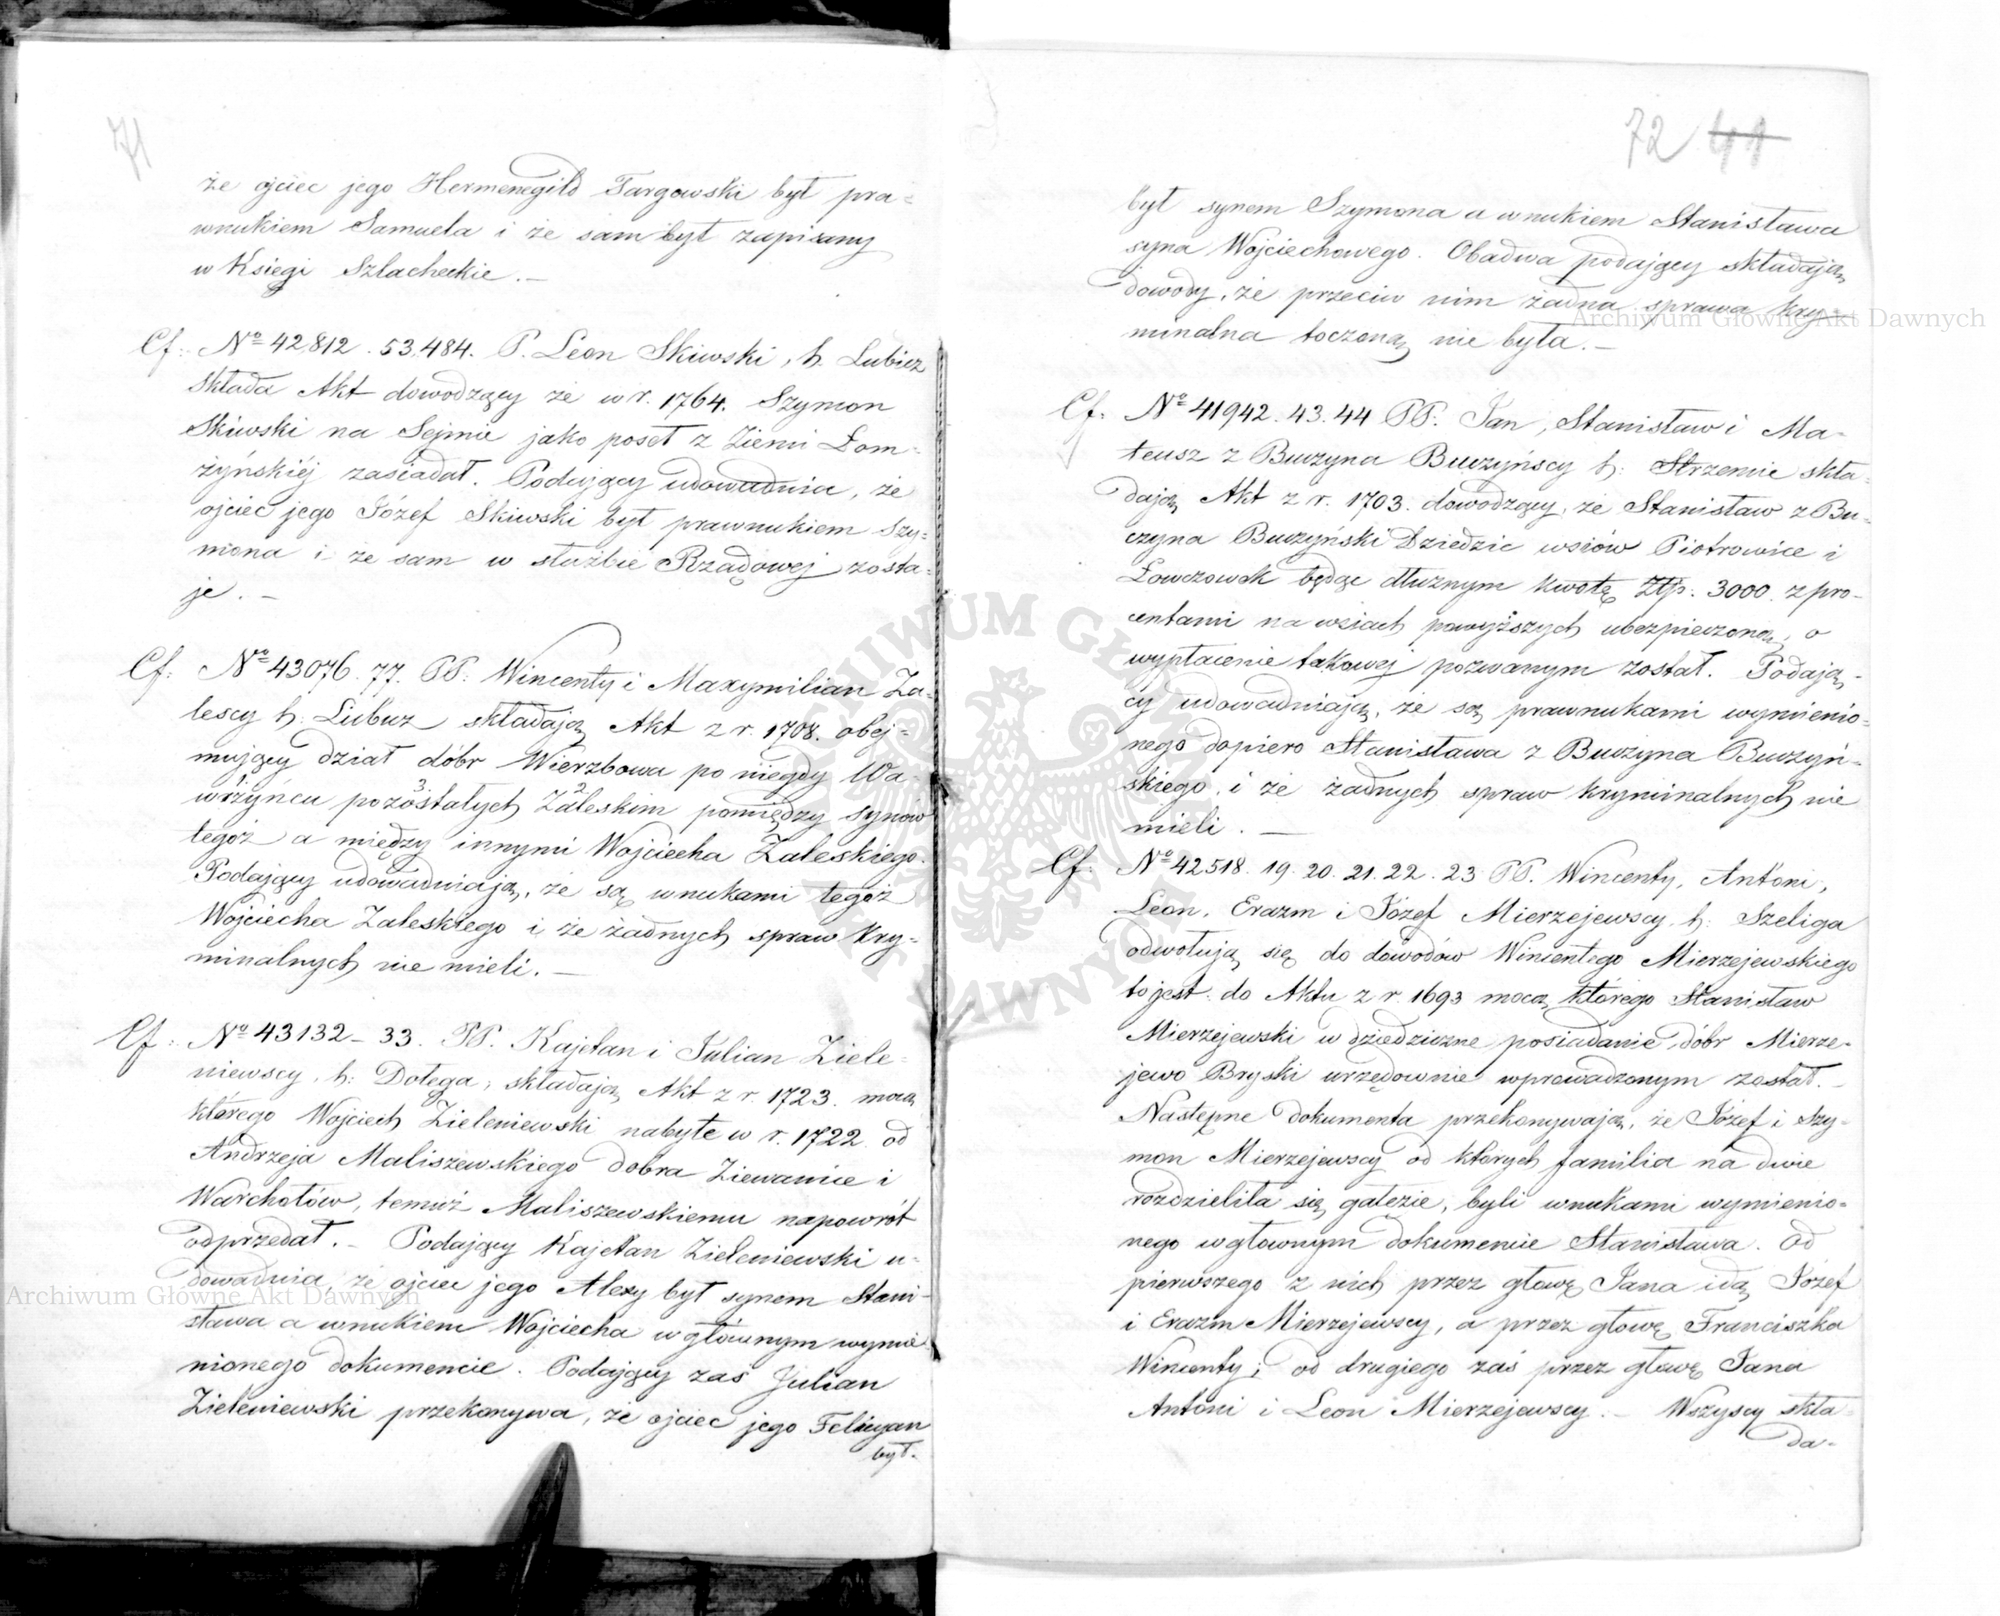 71
że ojciec jego Hermenegild Targowski był pra=
wnukiem Samuela i że sam był zapisany
w Księgi Szlacheckie. —
Cf: Nº 42812. 53.484. P. Leon Skiwski, h. Lubicz
składa Akt dowodzący że w r. 1764. Szymon
Skiwski na Sejmie jako poseł z Ziemi Łom=
żyńskiéj zasiadał. Podający udowadnia, że
ojciec jego Józef Skiwski był prawnukiem Szy=
mona i że sam w służbie Rządowej zosta=
je. —
Cf: Nº 43076. 77. PP: Wincenty i Maxymilian Za=
lescy h: Lubicz składają Akt z r. 1708. obej=
mujący dział dóbr Wierzbowa po niegdy Wa=
wrzyńcu pozostałych 3 Zaleskim 2 pomiędzy synów
tegóż a między innymi Wojciecha Zaleskiego.
Podający udowadniają, że są wnukami tegóż
Wojciecha Zaleskiego i że żadnych spraw kry=
minalnych nie mieli. —
Cf: Nº 43132 – 33. PP. Kajetan i Julian Ziele=
niewscy, h: Dołęga, składają Akt z r. 1723. mocą
którego Wojciech Zieleniewski nabyte w r. 1722 od
Andrzeja Maliszewskiego dobra Ziewanice i
Warchołów, temuż Maliszewskiemu napowrót
odprzedał. – Podający Kajetan Zieleniewski u=
dowadnia, że ojciec jego Alexy był synem Stani=
sława a wnukiem Wojciecha w głównym wymie=
nionego dokumencie. Podający zaś Julian
Zieleniewski przekonywa, że ojciec jego Felicyan
był.
72 41
był synem Szymona a wnukiem Stanisława
syna Wojciechowego. Obadwa podający składają
dowody, że przeciw nim żadna sprawa kry=
minalna toczoną nie była. —
Cf: Nº 41942. 43. 44 PP: Jan, Stanisław i Ma=
teusz z Buczyna Buczyńscy h: Strzemie skła=
dają Akt z r. 1703. dowodzący, że Stanisław z Bu=
czyna Buczyński Dziedzic wsiów Piotrowice i
Łowczowek będąc dłużnym kwotę Złp. 3000. z pro=
centami na wsiach powyższych ubezpieczoną, o
wypłacenie takowej pozwanym został. Podają=
cy udowadniają, że są prawnukami wymienio=
nego dopiero Stanisława z Buczyna Buczyń=
skiego, i że żadnych spraw kryminalnych nie
mieli. —
Cf: Nº 42518. 19. 20. 21. 22. 23. PP. Wincenty, Antoni,
Leon, Erazm i Józef Mierzejewscy, h: Szeliga
odwołują się do dowodów Wincentego Mierzejewskiego
to jest: do Aktu z r. 1693 mocą którego Stanisław
Mierzejewski w dziedziczne posiadanie dóbr Mierze=
jewo Bryski urzędownie wprowadzonym został. —
Następne dokumenta przekonywają, że Józef i Szy=
mon Mierzejewscy od których familia na dwie
rozdzieliła się gałęzie, byli wnukami wymienio=
nego w głównym dokumencie Stanisława. Od
pierwszego z nich przez głowę Jana idą Józef
i Erazm Mierzejewscy, a przez głowę Franciszka
Wincenty; od drugiego zaś przez głowę Jana
Antoni i Leon Mierzejewscy. – Wszyscy skła=
da=
Archiwum Główne Akt Dawnych
Archiwum Główne Akt Dawnych
ARCHIWUM GŁÓWNE AKT DAWNYCH